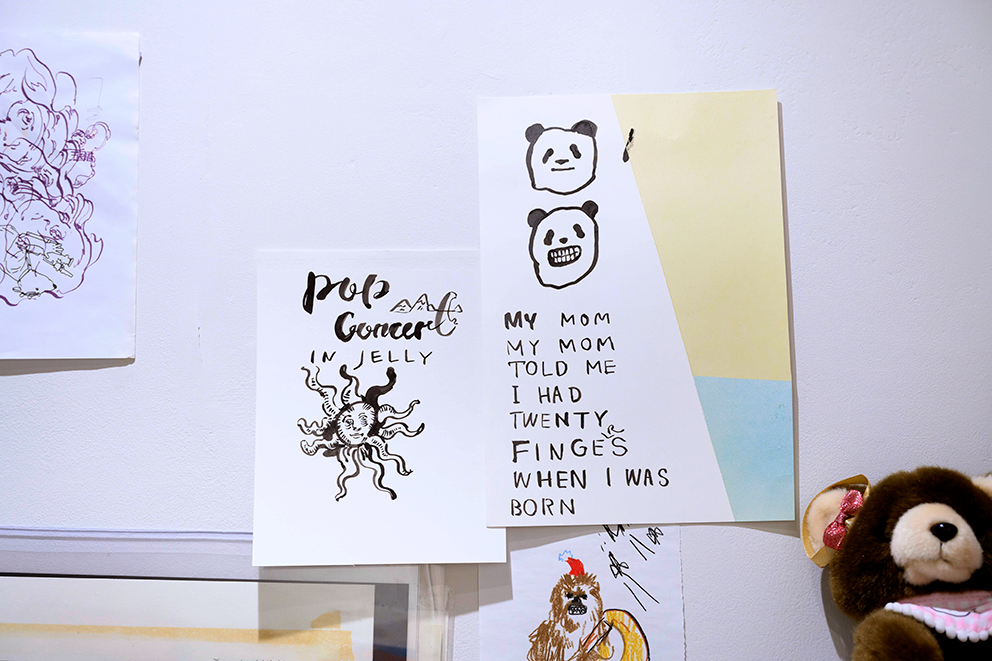 Pop
Concert
IN JELLY
MY MOM
MY MOM
TOLD ME
I HAD
TWENTY
FINGERS
WHEN I WAS
BORN